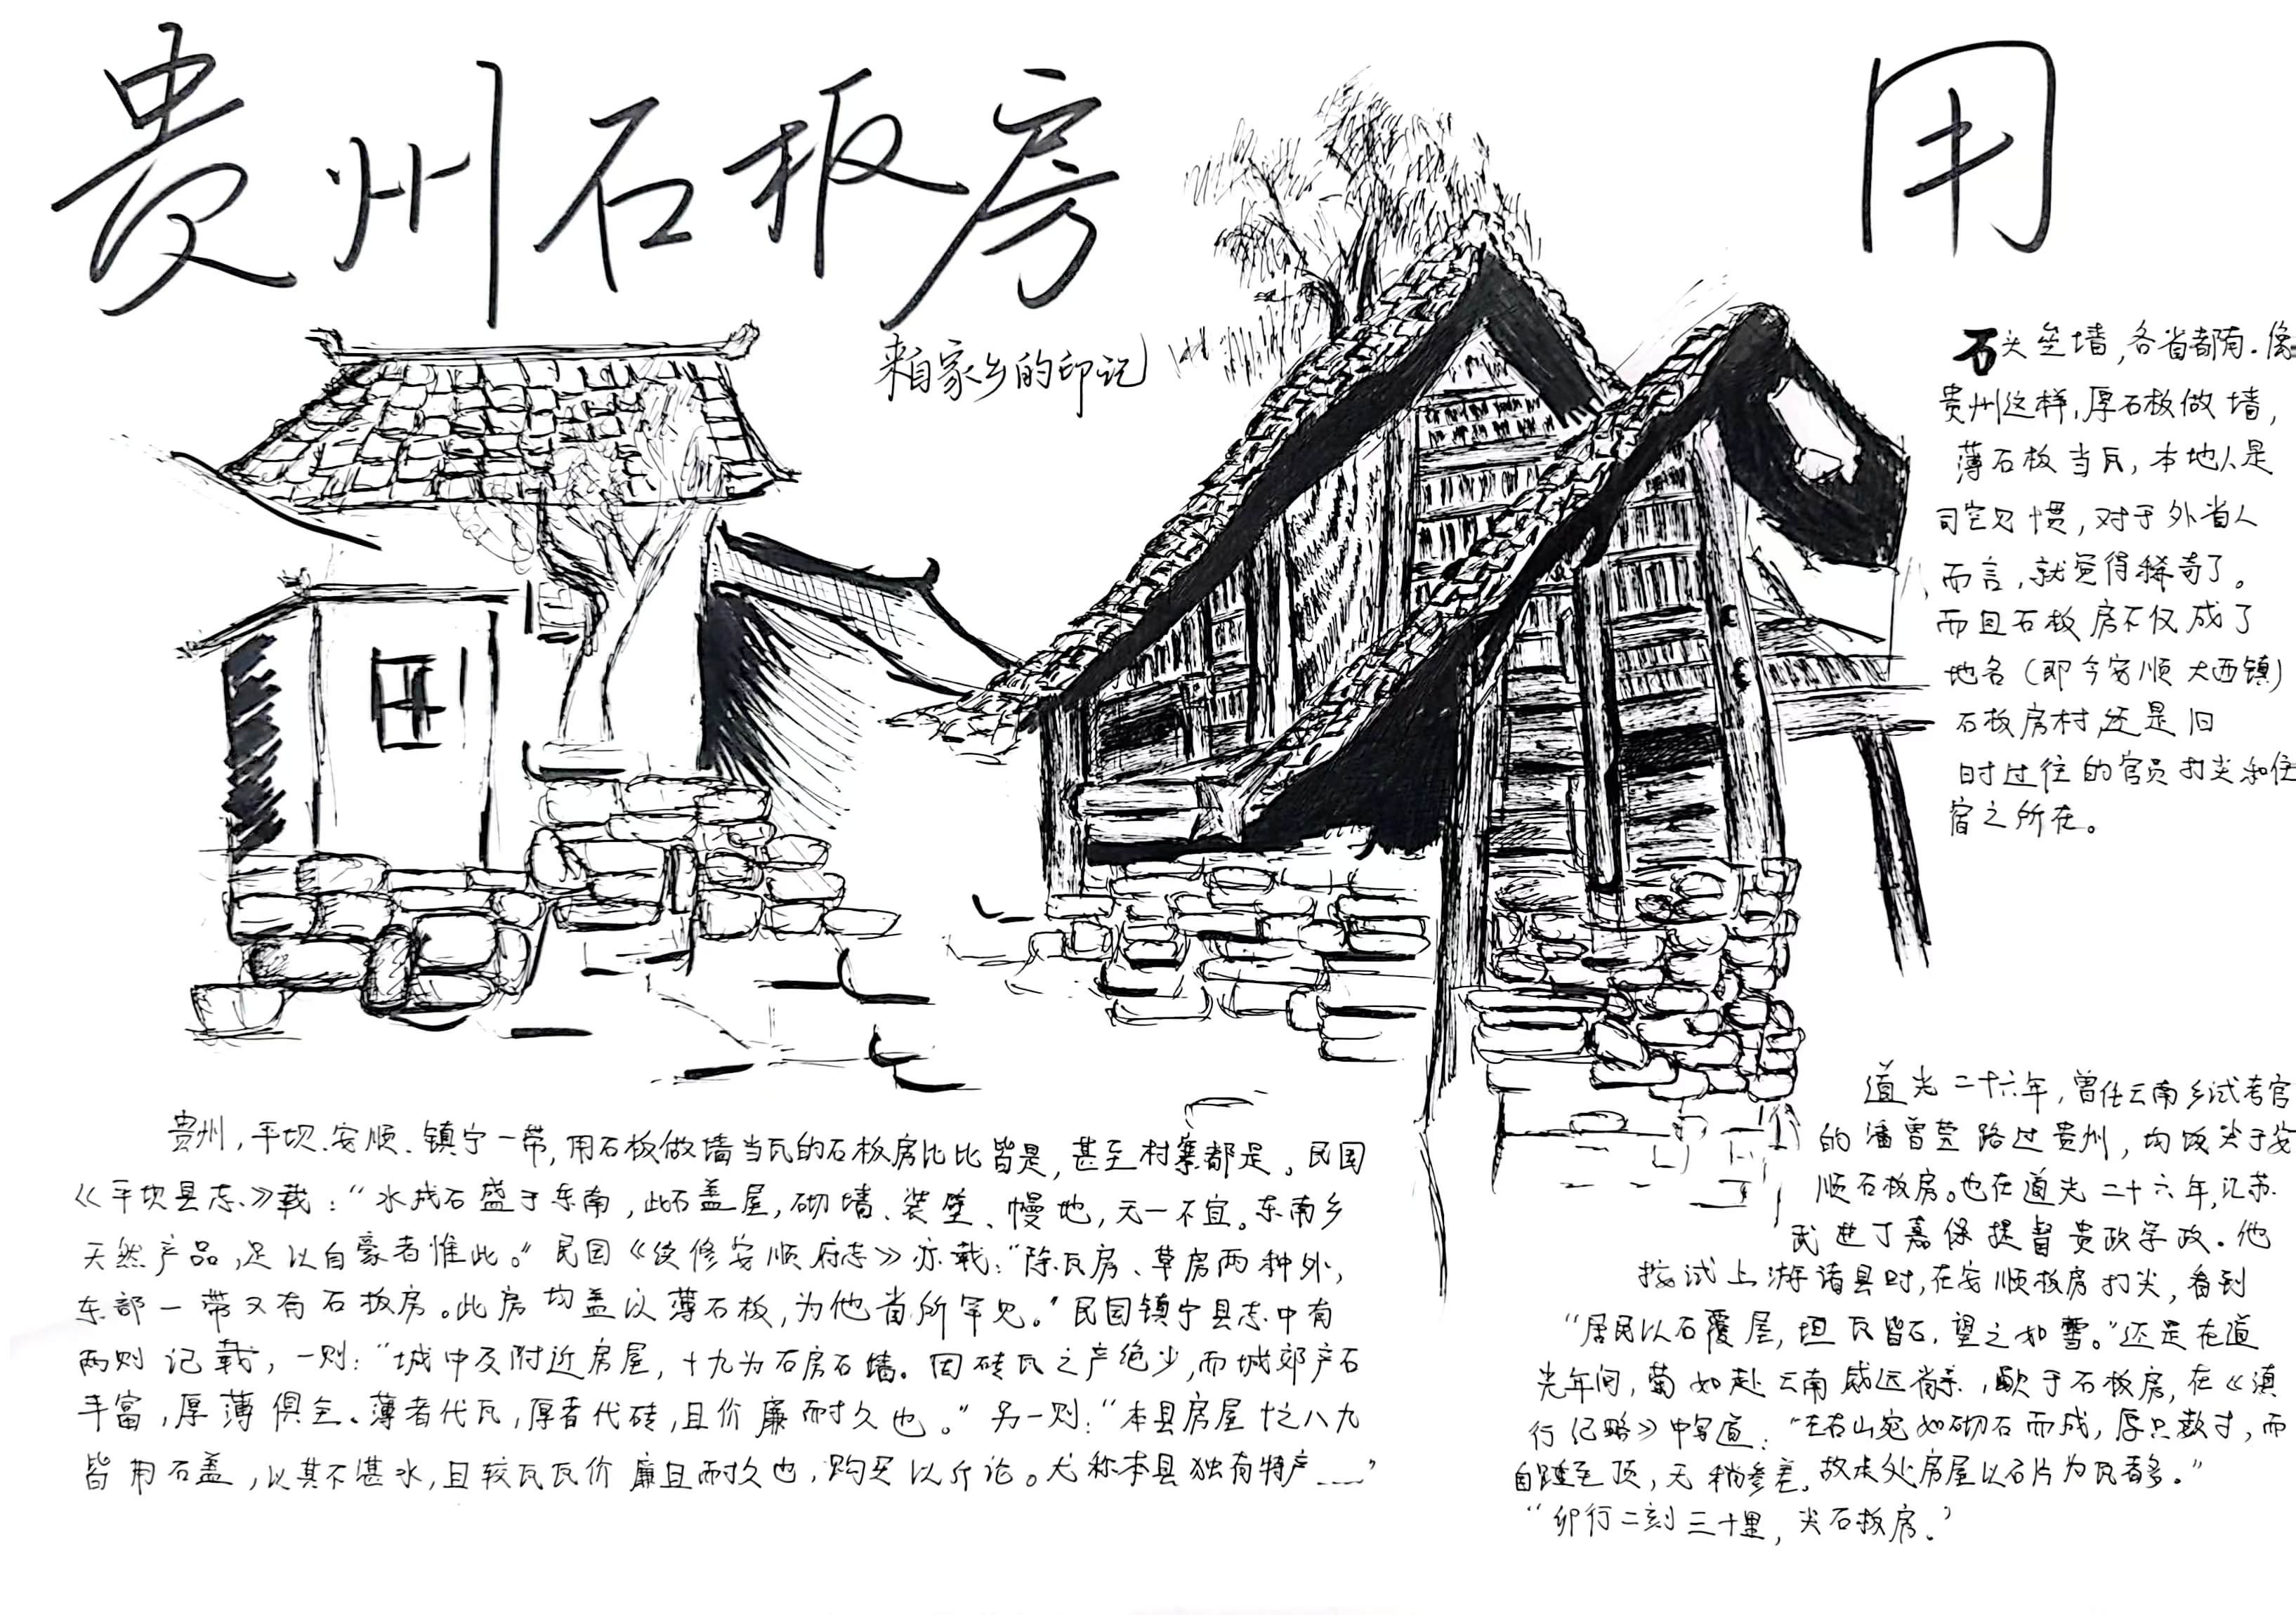 贵州石板房
用
来自家乡的印记
石头垒墙,各省都有.像
贵州这样,厚石板做墙,
薄石板当瓦,本地人是
司空见惯,对于外省人
而言,就觉得稀奇了。
而且石板房不仅成了
地名(即今安顺大西镇)
石板房村,还是旧
时过往的官员打尖和住
宿之所在。
贵州,平坝、安顺、镇宁一带,用石板做墙当瓦的石板房比比皆是,甚至村寨都是。民国
《平坝县志》载:“水成石盛于东南,此石盖屋,砌墙、装壁、幔地,无一不宜。东南乡
天然产品,足以自豪者惟此。”民国《续修安顺府志》亦载:“除瓦房、草房两种外,
东部一带又有石板房。此房均盖以薄石板,为他省所罕见。”民国镇宁县志中有
两则记载,一则:“城中及附近房屋,十九为石房石墙。因砖瓦之产绝少,而城郊产石
丰富,厚薄俱全、薄者代瓦,厚者代砖,且价廉而耐久也。”另一则:“本县房屋十之八九
皆用石盖,以其不湛水,且较瓦瓦价廉且耐久也,购买以斤论。尤称本县独有特产……”
道光二十六年,曾任云南乡试考官
的潘曾莹路过贵州,均饭尖于安
顺石板房。也在道光二十六年,江苏
武进丁嘉保提督贵政学政.他
按试上游诸县时,在安顺板房打尖,看到
“居民以石覆屋,垣瓦皆石,望之如雪。”还是在道
光年间,菊如赴云南威远省亲,歇于石板房,在《滇
行纪略》中写道:“左右山宛如砌石而成,厚只数寸,而
自踵至顶,无稍参差。故末处房屋以石片为瓦者多。”
“卯行二刻三十里,尖石板房.”